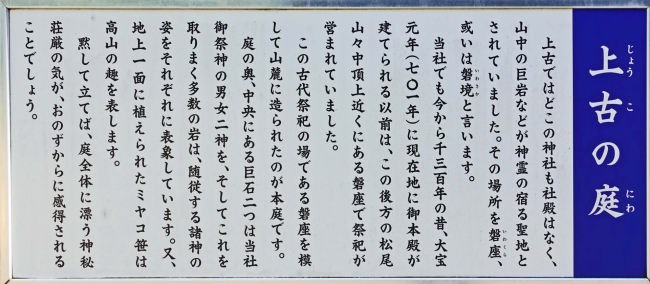 上古の庭
じょう こ にわ
上古ではどこの神社も社殿はなく、
山中の巨岩などが神霊の宿る聖地と
されていました。その場所を磐座、
いわくら
或いは磐境と言います。
いわさか
当社でも今から千三百年の昔、大宝
元年(七〇一年)に現在地に御本殿が
建てられる以前は、この後方の松尾
山々中頂上近くにある磐座で祭祀が
営まれていました。
この古代祭祀の場である磐座を模
して山麓に造られたのが本庭です。
庭の奥、中央にある巨石二つは当社
御祭神の男女二神を、そしてこれを
取りまく多数の岩は、随従する諸神の
姿をそれぞれに表象しています。又、
地上一面に植えられたミヤコ笹は
高山の趣を表します。
黙して立てば、庭全体に漂う神秘
荘厳の気が、おのずからに感得される
ことでしょう。